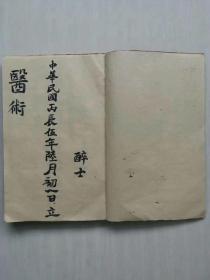 醉士
中華民國丙辰伍年陸月初八日立
醫術